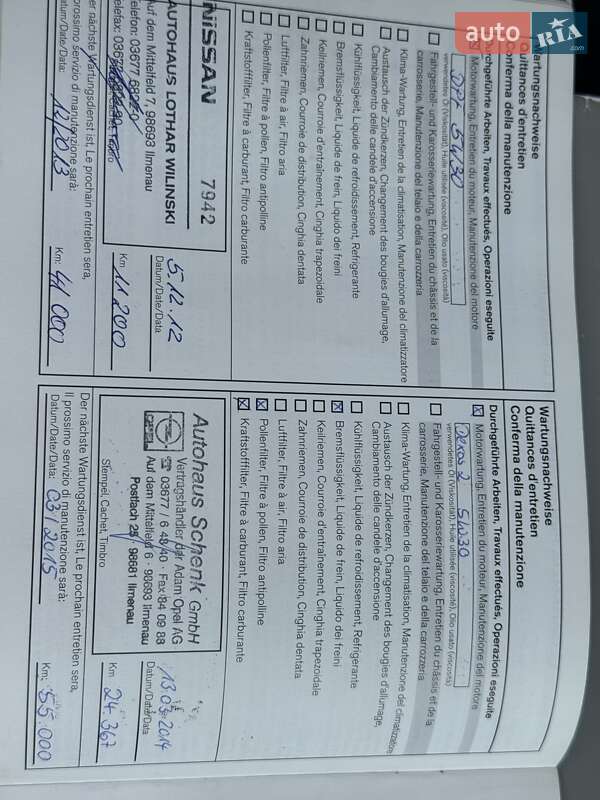 auto RIA
.com
Wartungsnachweise
Quittances d'entretien
Conferma della manutenzione
Durchgeführte Arbeiten, Travaux effectués, Operazioni eseguite
Motorwartung, Entretien du moteur, Manutenzione del motore
verwendetes Öl (Viskosität), Huile utilisée (viscosité), Olio usato (viscosità)
5W30
Fahrgestell- und Karosseriewartung, Entretien du châssis et de la
carrosserie, Manutenzione del telaio e della carrozzeria
Klima-Wartung, Entretien de la climatisation, Manutenzione del climatizzatore
Austausch der Zündkerzen, Changement des bougies d'allumage,
Cambiamento delle candele d'accensione
Kühlflüssigkeit, Liquide de refroidissement, Refrigerante
Bremsflüssigkeit, Liquide de frein, Liquido dei freini
Keilriemen, Courroie d'entraînement, Cinghia trapezoidale
Zahnriemen, Courroie de distribution, Cinghia dentata
Luftfilter, Filtre à air, Filtro aria
Pollenfilter, Filtre à pollen, Filtro antipolline
Kraftstofffilter, Filtre à carburant, Filtro carburante
NISSAN 7942
AUTOHAUS LOTHAR WILINSKI
Auf dem Mittelfeld 7, 98693 Ilmenau
Datum/Date/Data
5.12.12
Km
11 200
Der nächste Wartungsdienst ist, Le prochain entretien sera,
Il prossimo servizio di manutenzione sarà:
Datum/Date/Data: 12/2013
Km: 41 000
Wartungsnachweise
Quittances d'entretien
Conferma della manutenzione
Durchgeführte Arbeiten, Travaux effectués, Operazioni eseguite
Motorwartung, Entretien du moteur, Manutenzione del motore
verwendetes Öl (Viskosität), Huile utilisée (viscosité), Olio usato (viscosità)
Dexos 2 5W30
Fahrgestell- und Karosseriewartung, Entretien du châssis et de la
carrosserie, Manutenzione del telaio e della carrozzeria
Klima-Wartung, Entretien de la climatisation, Manutenzione del climatizzatore
Austausch der Zündkerzen, Changement des bougies d'allumage,
Cambiamento delle candele d'accensione
Kühlflüssigkeit, Liquide de refroidissement, Refrigerante
Bremsflüssigkeit, Liquide de frein, Liquido dei freini
Keilriemen, Courroie d'entraînement, Cinghia trapezoidale
Zahnriemen, Courroie de distribution, Cinghia dentata
Luftfilter, Filtre à air, Filtro aria
Pollenfilter, Filtre à pollen, Filtro antipolline
Kraftstofffilter, Filtre à carburant, Filtro carburante
Autohaus Schenk GmbH
Vertragshändler der Adam Opel AG
OPEL
☎ 03677 / 6 48 40 · Fax 84 09 88
Auf dem Mittelfeld 6 · 98693 Ilmenau
Postfach 25 98681 Ilmenau
Stempel, Cachet, Timbro
Datum/Date/Data
13.03.2014
Km
24.367
Der nächste Wartungsdienst ist, Le prochain entretien sera,
Il prossimo servizio di manutenzione sarà:
Datum/Date/Data: 03/2015
Km: 55.000